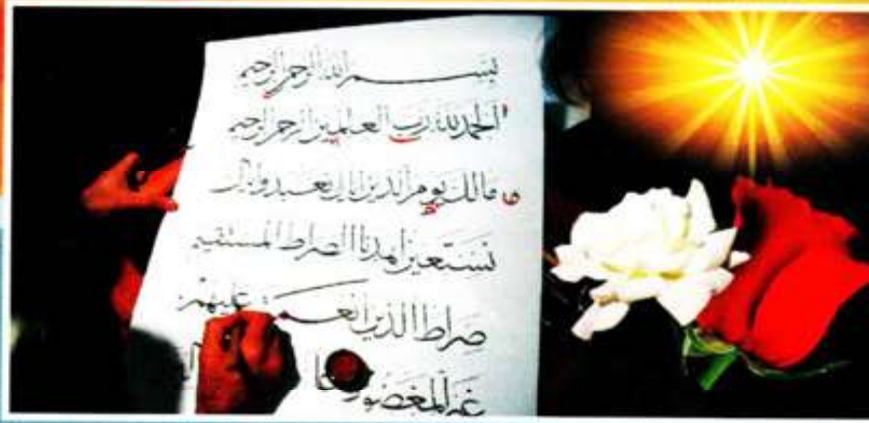 بسم الله الرحمن الرحيم
الحمد لله رب العالمين الرحمن الرحيم
مالك يوم الدين إياك نعبد وإياك
نستعين اهدنا الصراط المستقيم
صراط الذين أنعمـ عليهم
غير المغضو